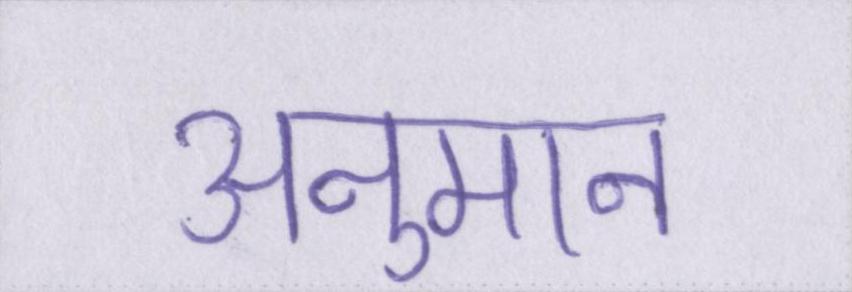 अनुमान